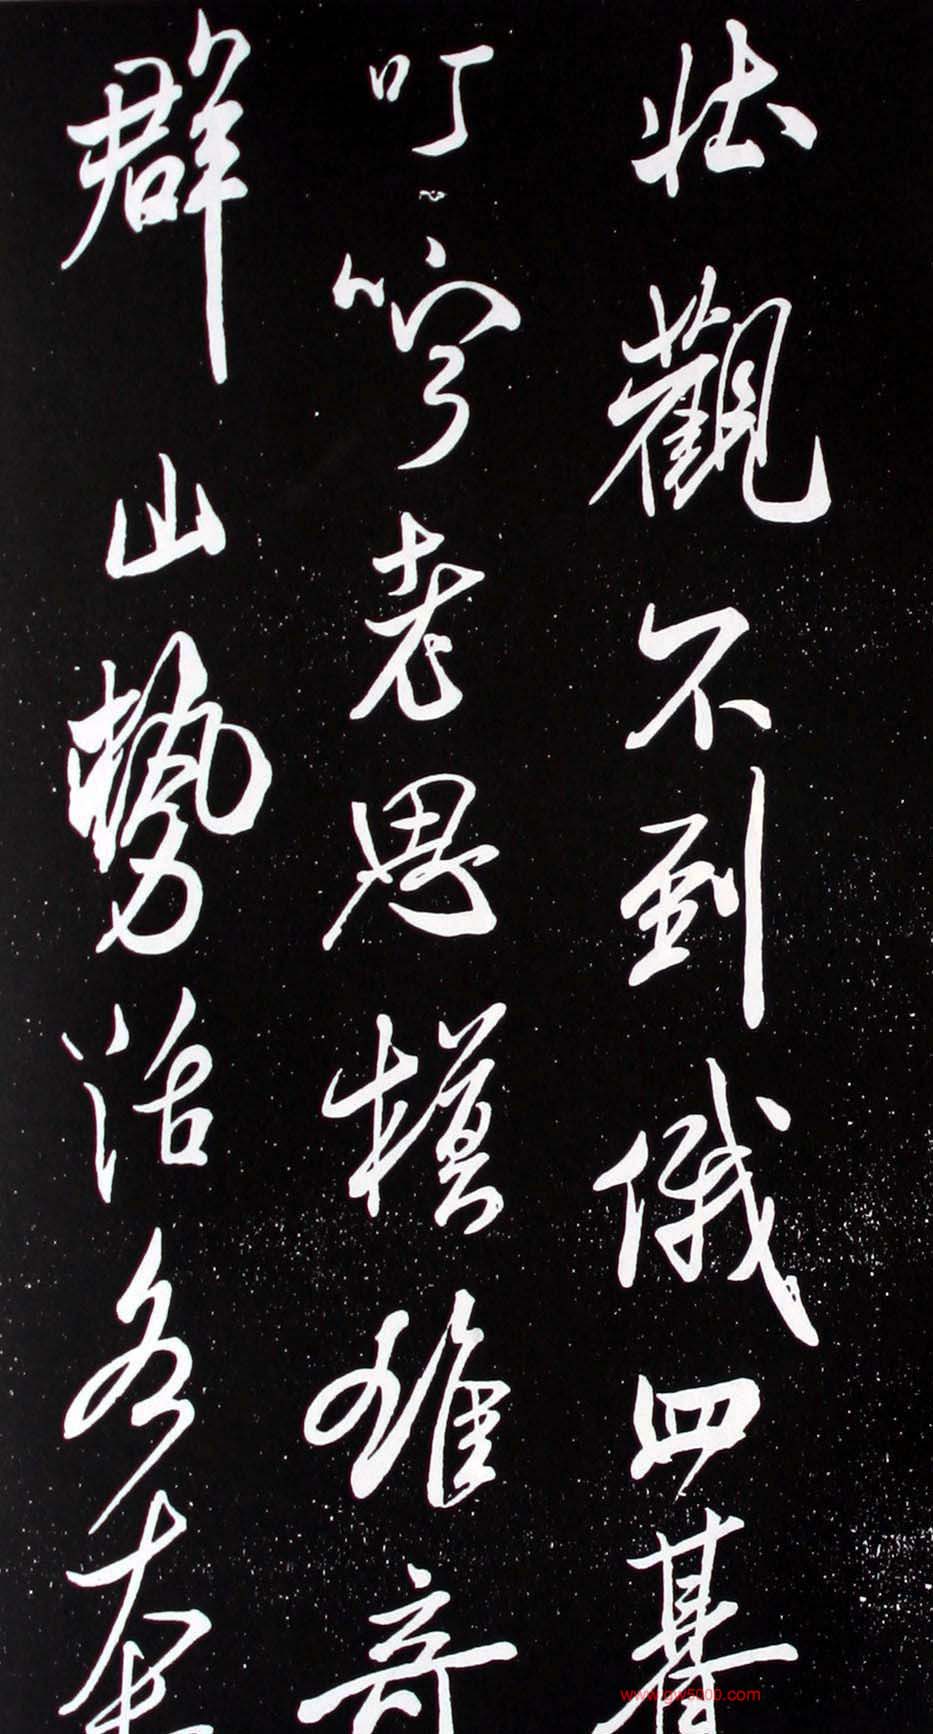 壯觀不到俄四暮
叮嚀老思模雄奇
群山勢活各奔
www.gw5000.com